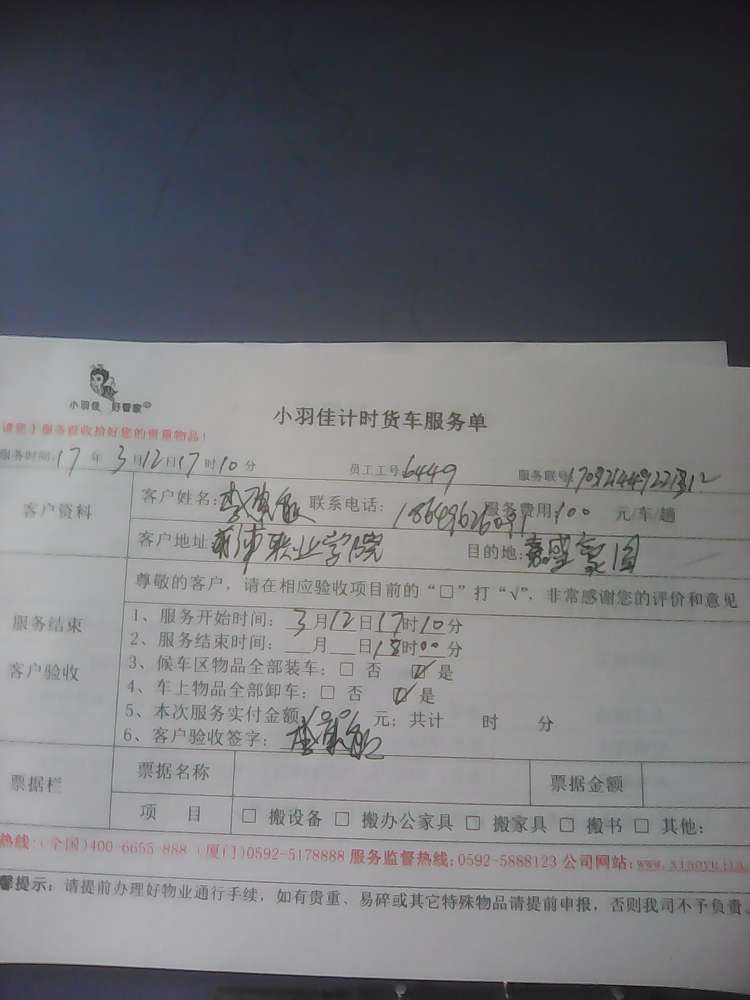 小羽佳 好管家
小羽佳计时货车服务单
请您于服务前收拾好您的贵重物品！
服务时间：17 年 3月12日17时10分 员工工号6449 服务联号
客户资料
客户姓名： 联系电话： 服务费用：100 元/车/趟
客户地址 职业学院 目的地：嘉盛豪园
尊敬的客户，请在相应验收项目前的“□”打“√”，非常感谢您的评价和意见
服务结束
客户验收
1、服务开始时间：3月12日17时10分
2、服务结束时间：__月__日18时00分
3、候车区物品全部装车：□ 否 ☑ 是
4、车上物品全部卸车：□ 否 ☑ 是
5、本次服务实付金额100元；共计 时 分
6、客户验收签字：
票据栏
票据名称 票据金额
项 目 □ 搬设备 □ 搬办公家具 □ 搬家具 □ 搬书 □ 其他：
热线：(全国)400-6655-888 (厦门)0592-5178888 服务监督热线：0592-5888123 公司网站：www.xiaoyujia
馨提示：请提前办理好物业通行手续，如有贵重、易碎或其它特殊物品请提前申报，否则我司不予负责。